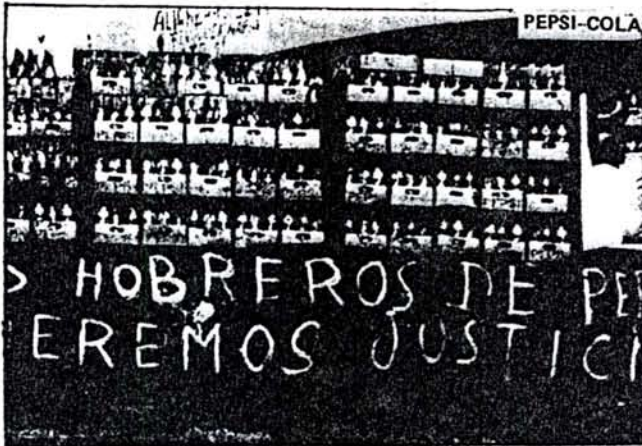 PEPSI-COLA
HOBREROS DE PE
EREMOS JUSTICI